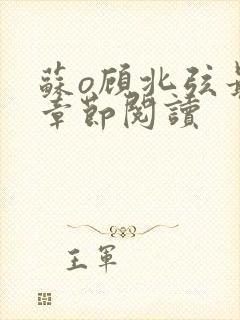 蘇o顧北弦最
章節閱讀
王軍